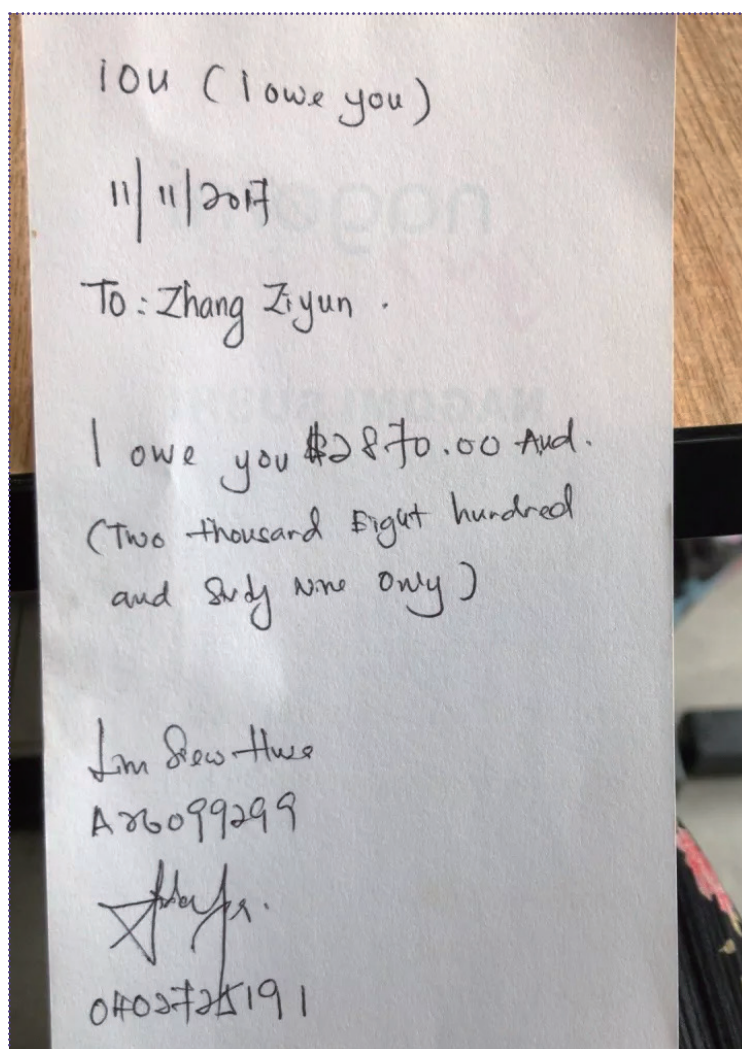 IOU (I owe you)
11/11/2017
To: Zhang Ziyun.
I owe you $2870.00 Aud.
(Two thousand Eight hundred
and Nine Only)
Lim Siew Hwe
A26099299
0402725191